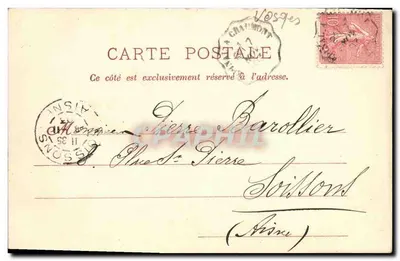 Vosges
CHAUMONT
CARTE POSTALE
Ce côté est exclusivement réservé à l'adresse.
Pierre Barollier
Rue St Pierre
Soissons
(Aisne)
SOISSONS
AISNE